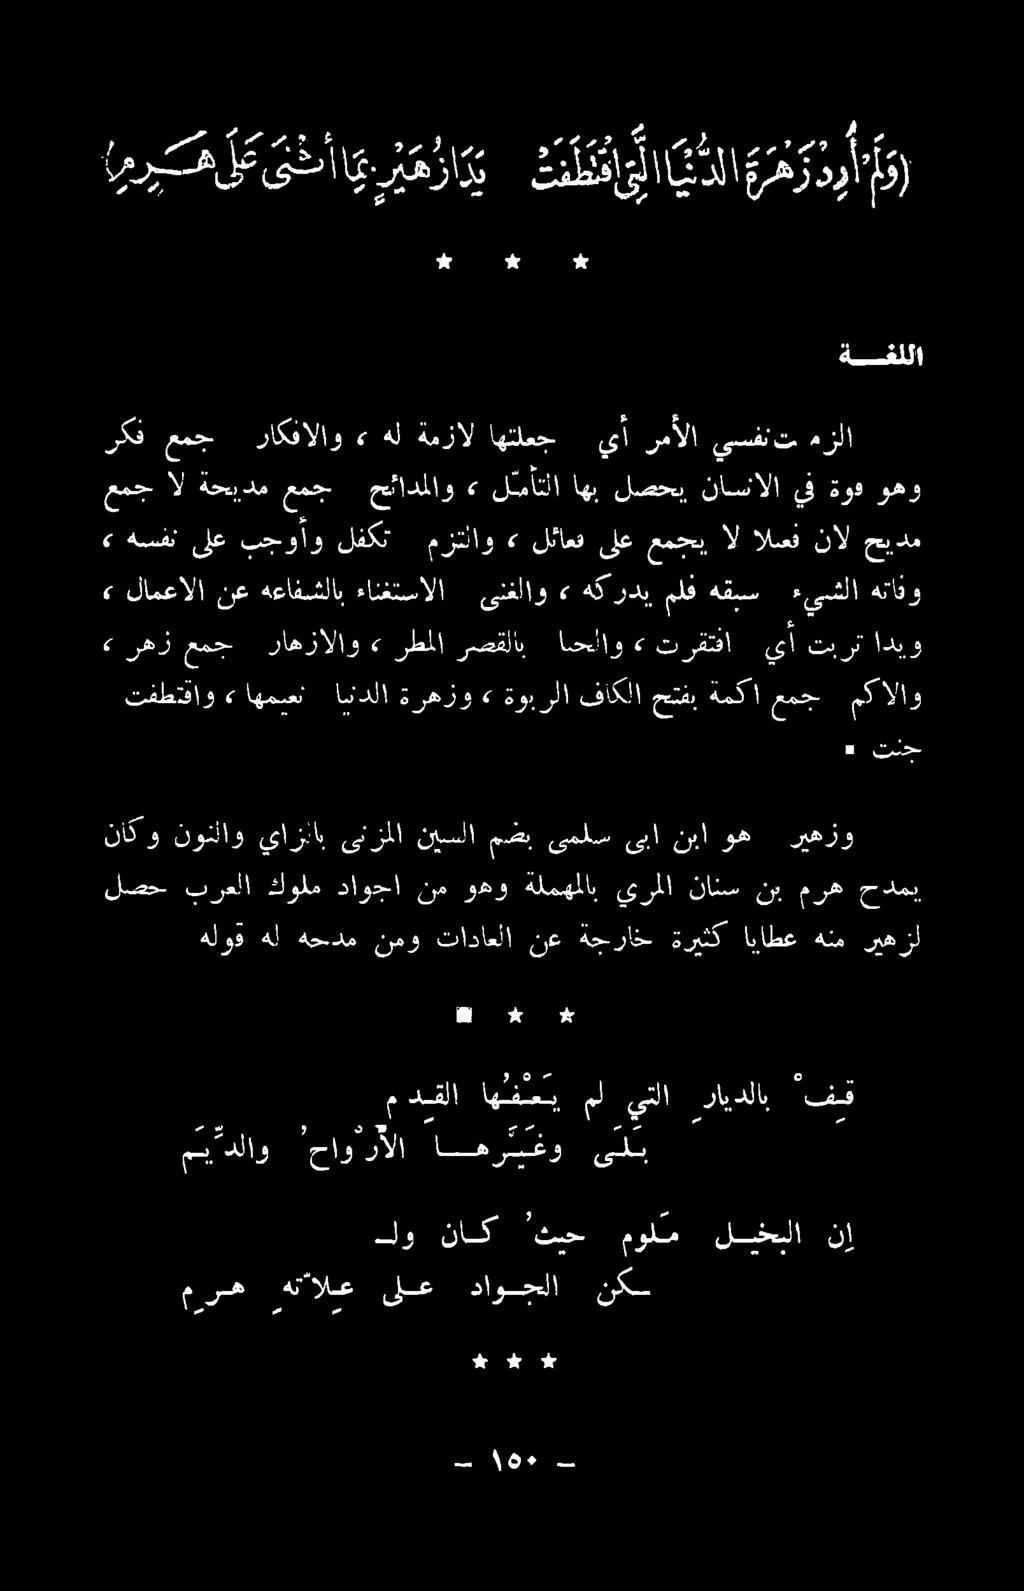 (وَلَمْ أُرِدْ زَهْرَةَ الدُّنْيَا الَّتِي اقْتَطَفَتْ يَدَا زُهَيْرٍ بِمَا أَثْنَى عَلَى هَرِمِ)
★ ★ ★
اللغــة
الزمت نفسي الأمر أي جعلتها لازمة له ، والافكار جمع فكر
وهو قوة في الانسان يحصل بها التأمّل ، والمدائح جمع مديحة لا جمع
مديح لان فعيلا لا يجمع على فعائل ، والتزم تكفل وأوجب على نفسه ،
وفاته الشيء سبقه فلم يدركه ، والغنى الاستغناء بالشفاعه عن الاعمال ،
ويدا تربت أي افتقرت ، والحيا بالقصر المطر ، والازهار جمع زهر ،
والاكم جمع اكمة بفتح الكاف الربوة ، وزهرة الدنيا نعيمها ، واقتطفت
جنت ▪
وزهير هو ابن ابى سلمى بضم السين المزنى بالزاي والنون وكان
يمدح هرم بن سنان المري بالمهملة وهو من اجواد ملوك العرب حصل
لزهير منه عطايا كثيرة خارجة عن العادات ومن مدحه له قوله
★ ★ ▪
قِـفْ بالديارِ التي لم يَـعْـفُـها القِـدم
بَـلَـى وغَـيَّـرهـــا الأرْواحُ والدِّيَـم
إِن البخيـل مَـلوم حيثُ كـان ولـ
ـكن الجـواد عـلى عِـلاّتهِ هـرِم
★ ★ ★
– ١٥٠ –